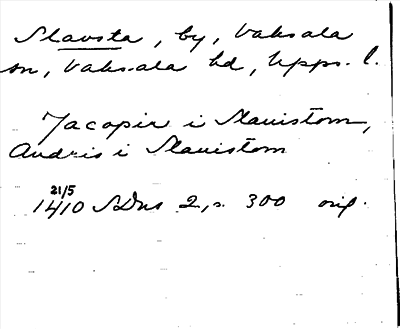 Slavsta, by, Vaksala
sn, Vaksala hd, Upps. l.
Jacopir i Slauistom,
Andris i Slauistom
21/5
1410 SDns 2, s. 300 orig.